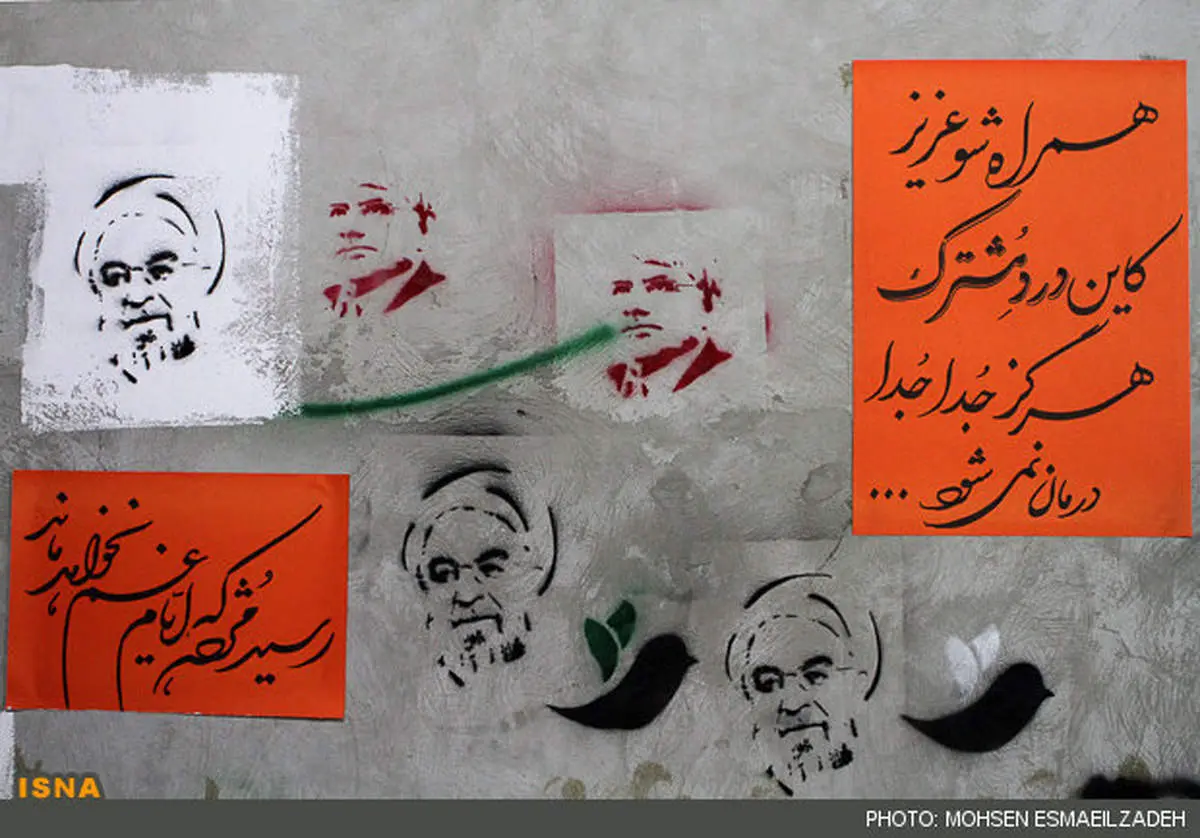 همراه شو عزیز
کاین دردِ مُشترک
هرگز جُدا جُدا
درمان نمی شود ...
رسید مُژده که ایّام غم نخواهد ماند
ISNA
PHOTO: MOHSEN ESMAEILZADEH